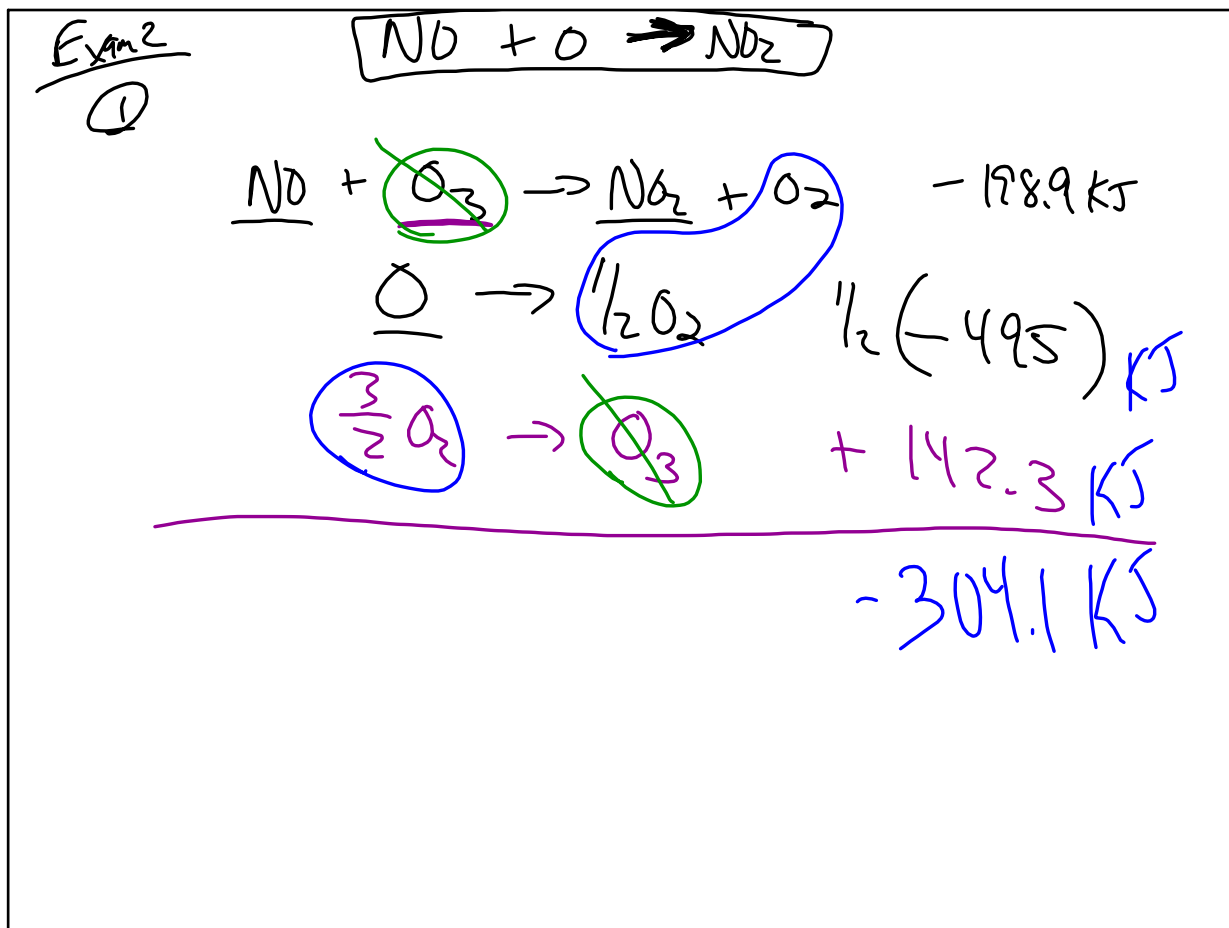 Exam 2
①
NO + O → NO₂
NO + O₃ → NO₂ + O₂ -198.9 KJ
O → 1/2 O₂ 1/2 (-495) KJ
3/2 O₂ → O₃ + 142.3 KJ
-304.1 KJ